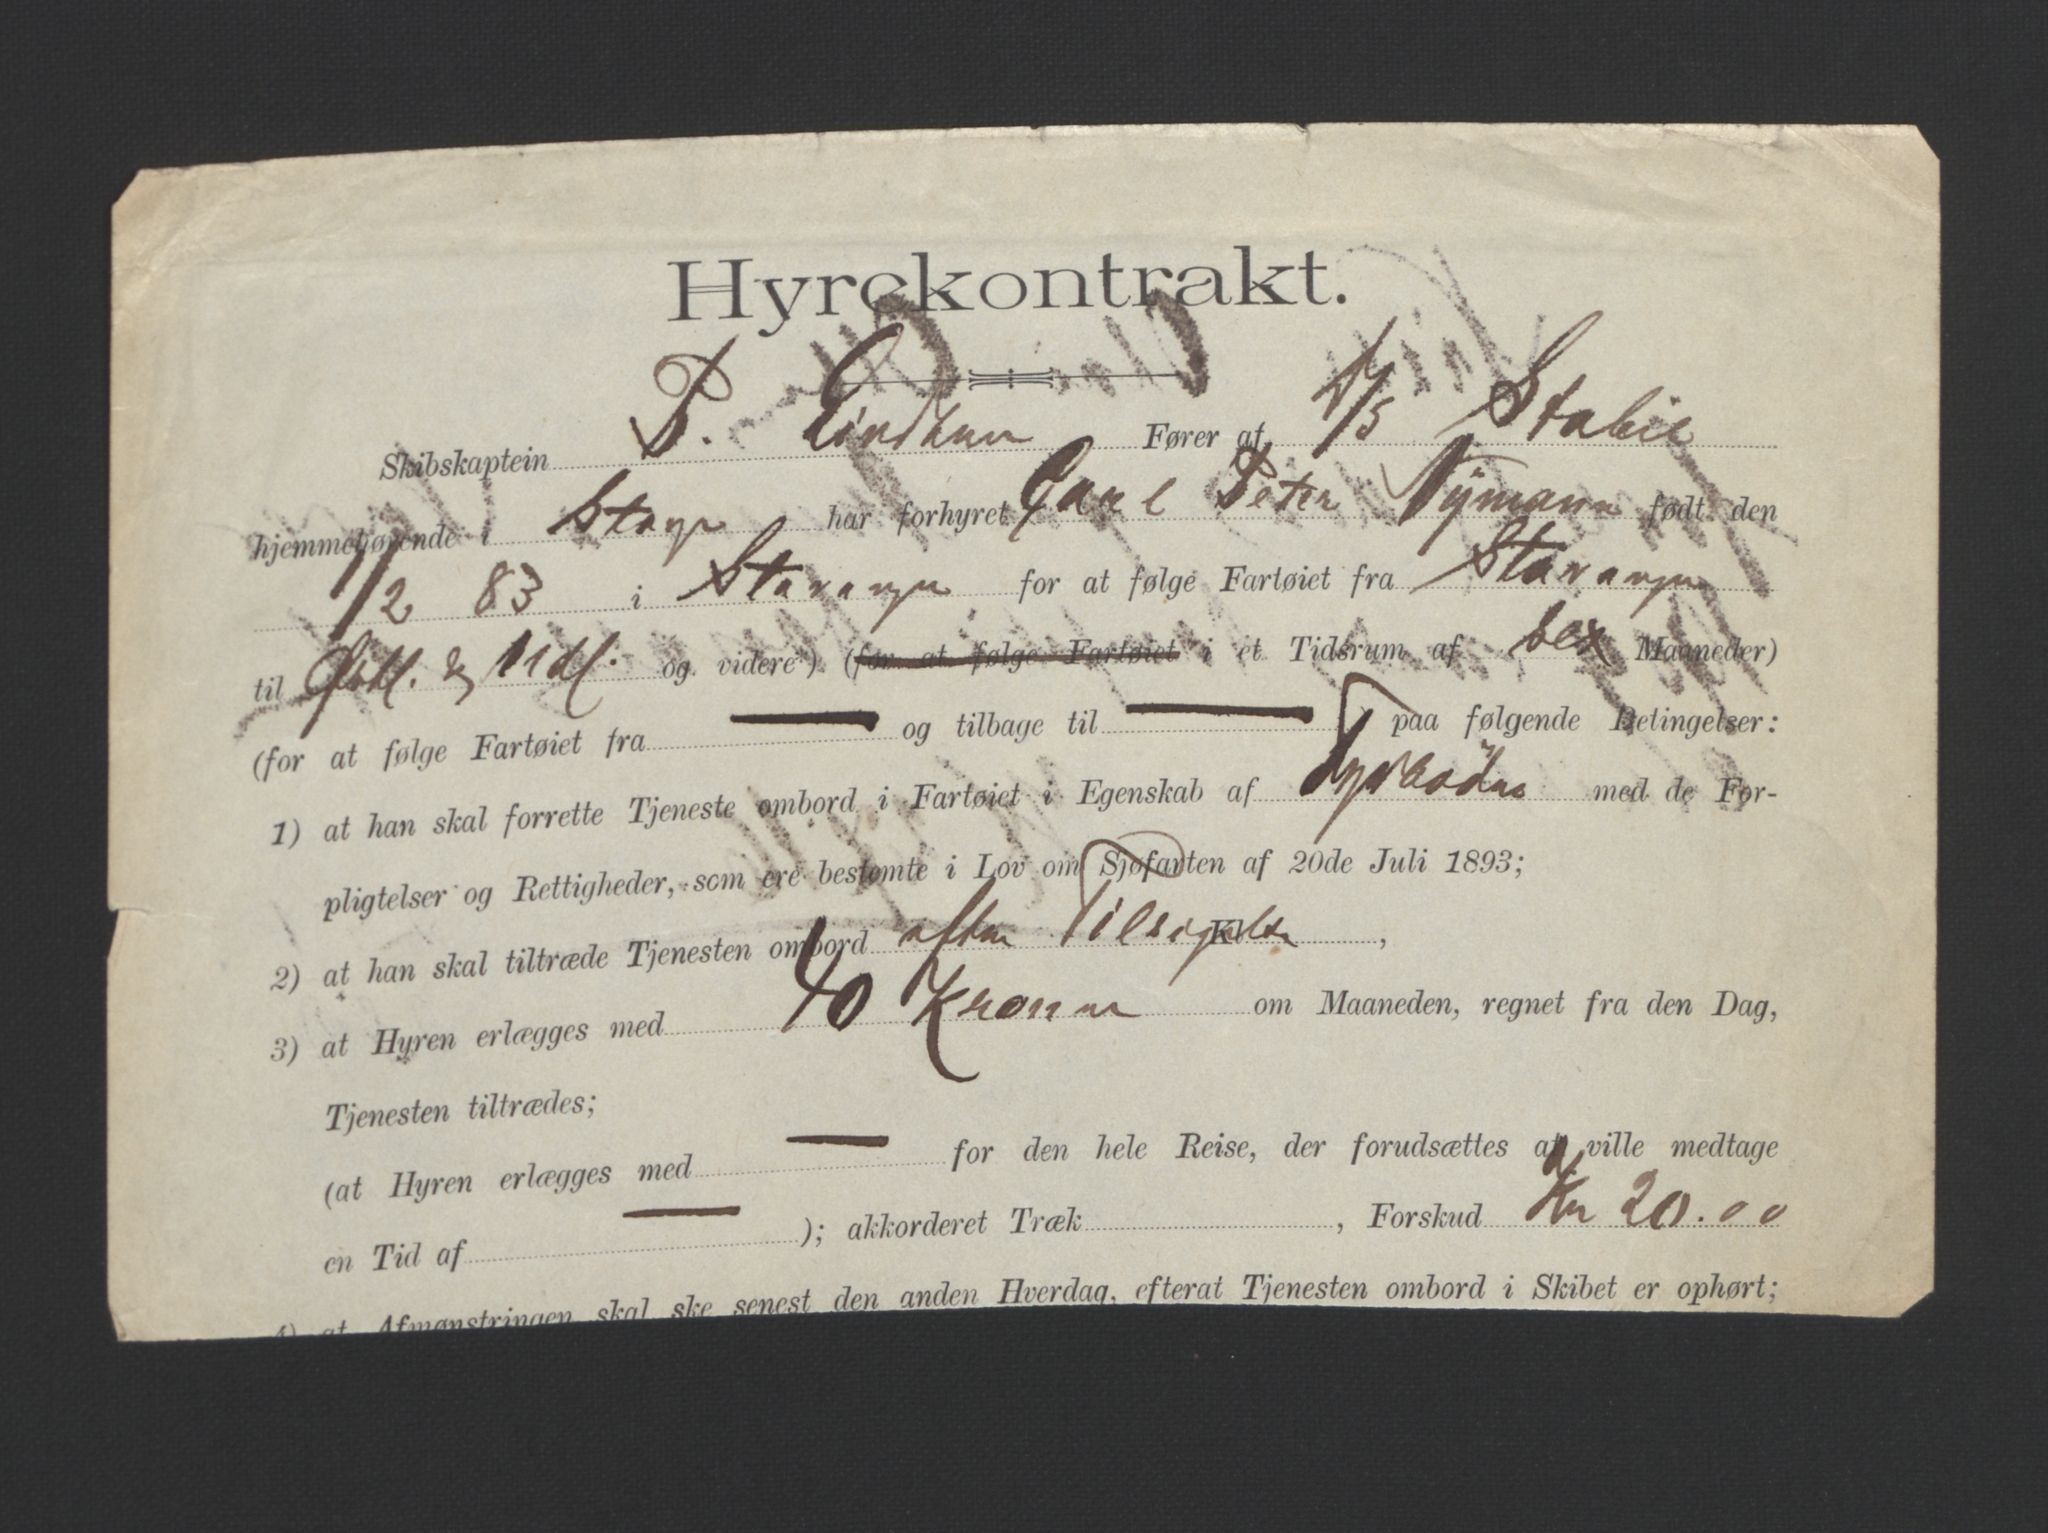 Hyrekontrakt.
Skibskaptein P. Fører af S/S Stabil
hjemmehørende i Stavgr har forhyret Carl Peter Nÿmann født den
1/2 83 i Stavanger for at følge Fartøiet fra Stavanger
til Indl. & Udl. og videre) (for at følge Fartøiet i et Tidsrum af sex Maaneder)
(for at følge Fartøiet fra — og tilbage til — ) paa følgende Betingelser:
1) at han skal forrette Tjeneste ombord i Fartøiet i Egenskab af Fyrbøder med de For-
pligtelser og Rettigheder, som ere bestemte i Lov om Sjøfarten af 20de Juli 1893;
2) at han skal tiltræde Tjenesten ombord efter Tilsigelse Kl. ,
3) at Hyren erlægges med Kroner om Maaneden, regnet fra den Dag,
Tjenesten tiltrædes;
(at Hyren erlægges med — for den hele Reise, der forudsættes at ville medtage
en Tid af — ); akkorderet Træk , Forskud Kr 20.00
4) at Afmønstringen skal ske senest den anden Hverdag, efterat Tjenesten ombord i Skibet er ophørt;